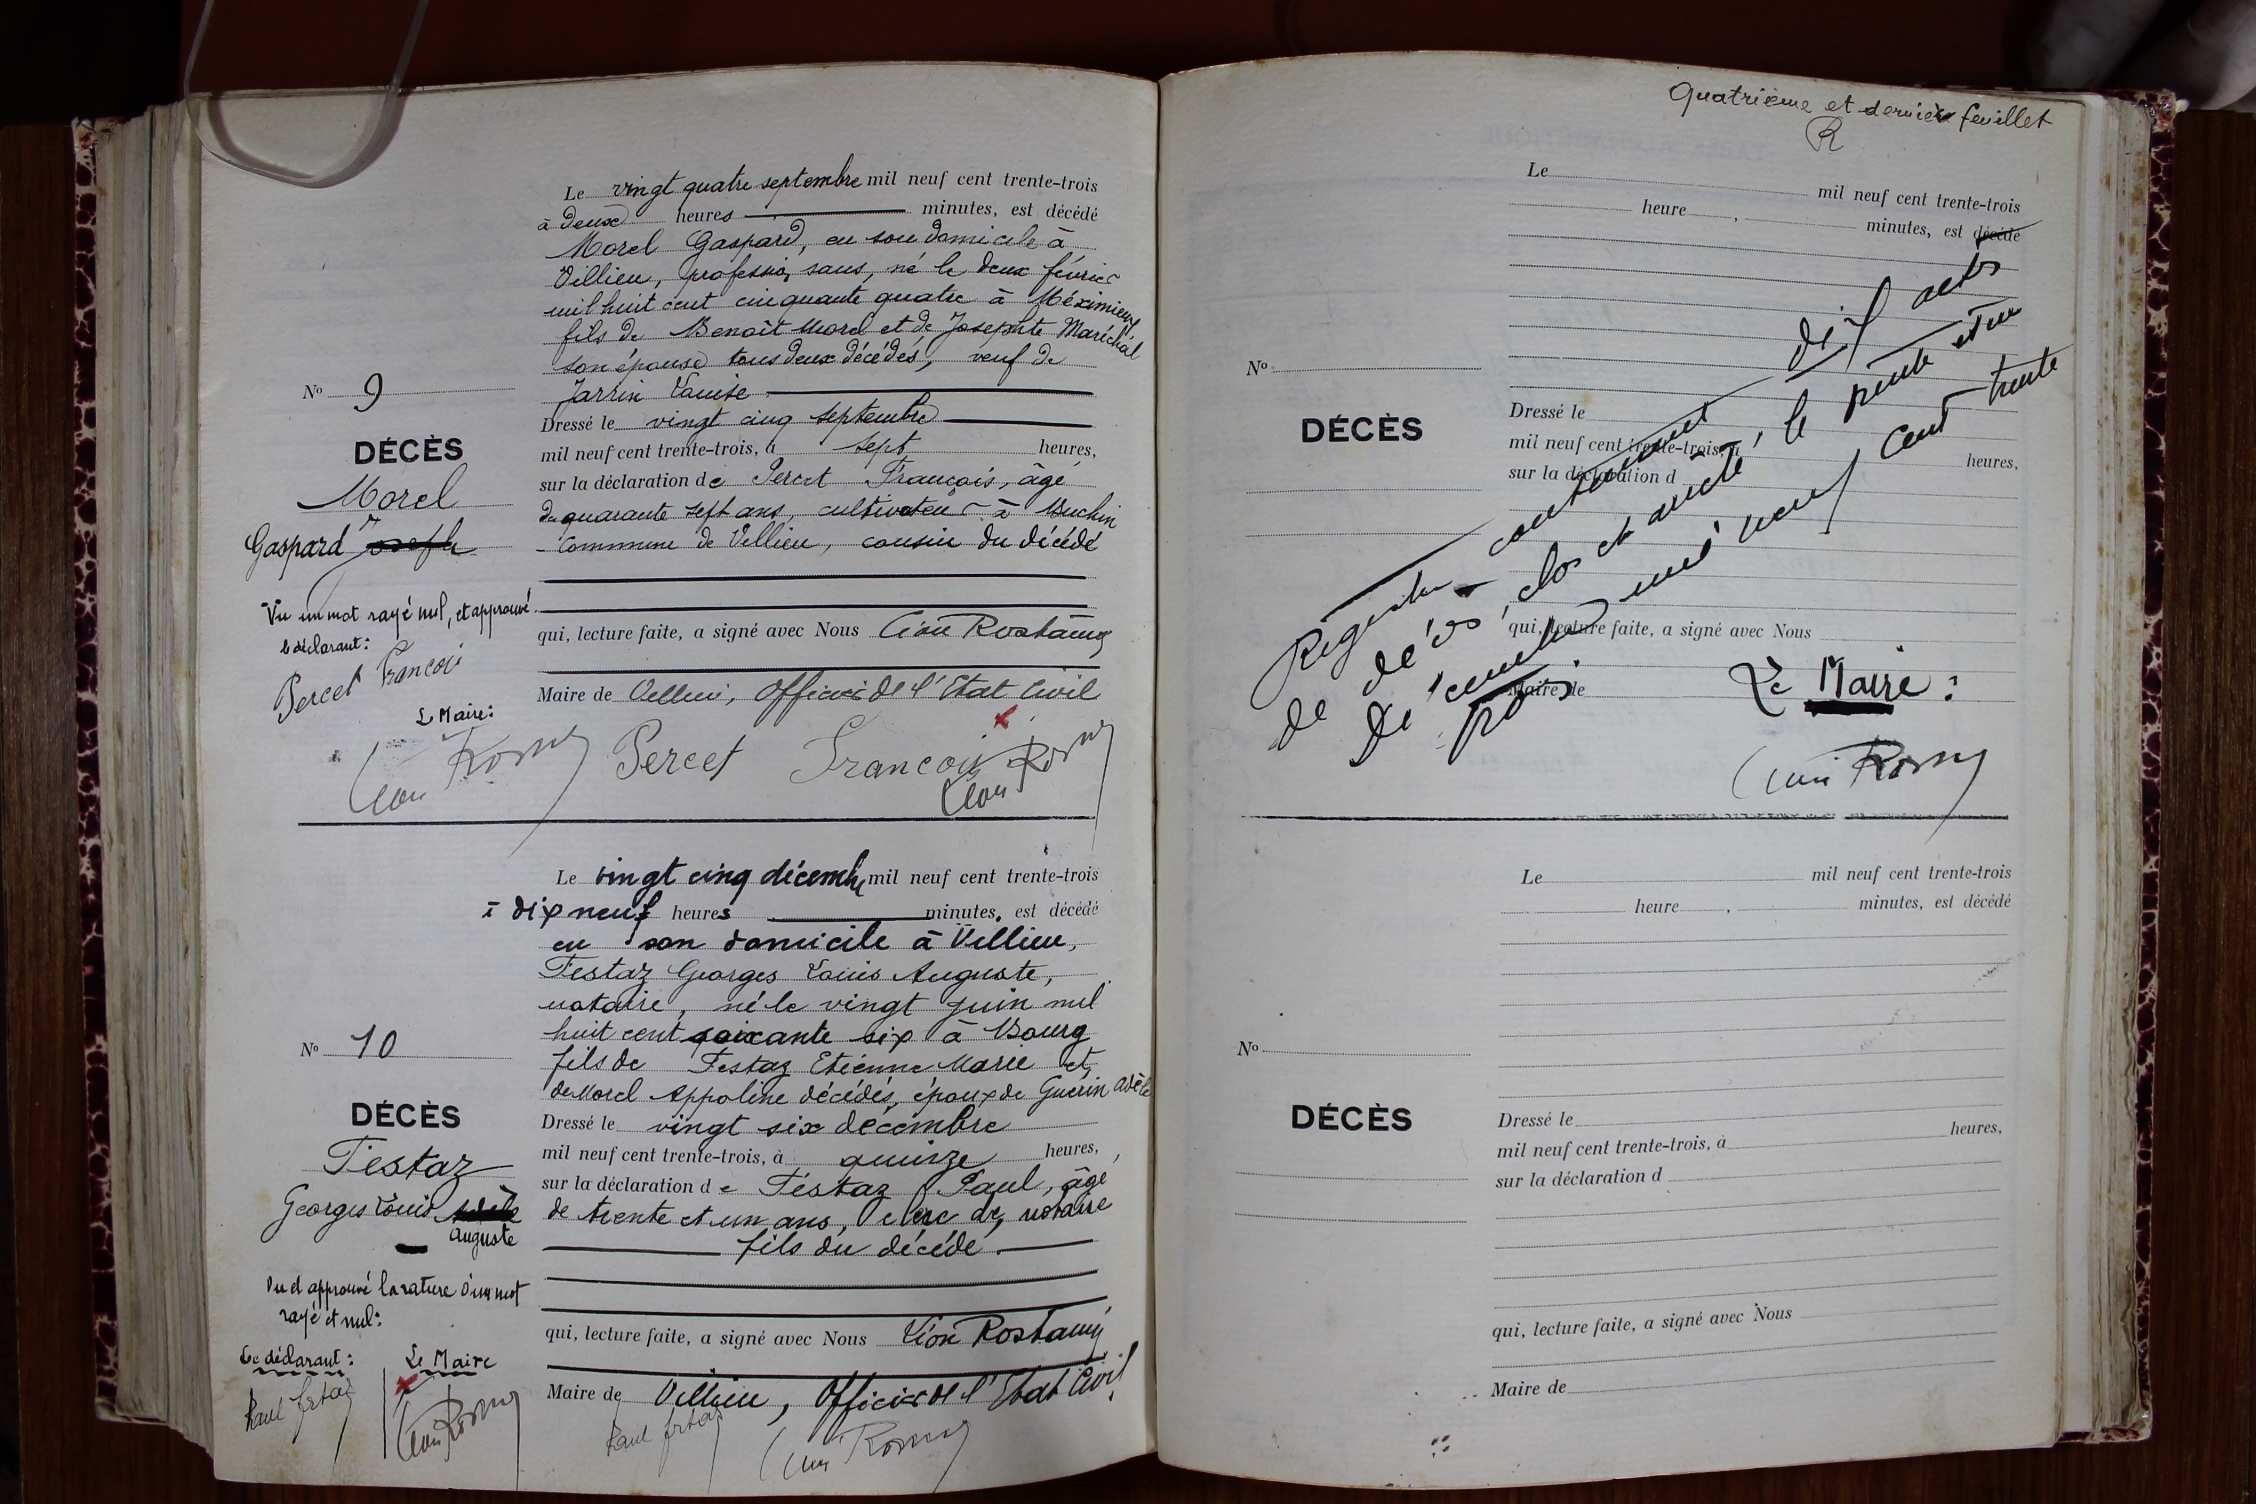 Le vingt quatre septembre mil neuf cent trente-trois
à deux heures minutes, est décédé
Morel Gaspard, en son domicile à
Villieu, profession sans, né le deux février
mil huit cent cinquante quatre à Méximieux
fils de Benoît Morel et de Josephte Maréchal
son épouse tous deux décédés, veuf de
Jarrin Louise
Dressé le vingt cinq septembre
mil neuf cent trente-trois, à sept heures,
sur la déclaration de Percet François, âgé
de quarante sept ans, cultivateur à Buchin
Commune de Villieu, cousin du décédé
qui, lecture faite, a signé avec Nous Léon Rostaing
Maire de Villieu, Officier de l'Etat Civil
Percet François
Nº 9
DÉCÈS
Morel
Gaspard Joseph
Vu un mot rayé nul, et approuvé
le déclarant:
Percet François
Le Maire:
Le vingt cinq décembre mil neuf cent trente-trois
à dix neuf heures minutes, est décédé
en son domicile à Villieu,
Festaz Georges Louis Auguste,
notaire, né le vingt juin mil
huit cent soixante six à Bourg
fils de Festaz Etienne Marie et
de Morel Appoline décédés, époux de Guérin Adèle
Dressé le vingt six décembre
mil neuf cent trente-trois, à quinze heures,
sur la déclaration de Festaz Paul, âgé
de trente et un ans, clerc de notaire
fils du décédé
qui, lecture faite, a signé avec Nous Léon Rostaing
Maire de Villieu, Officier de l'Etat Civil
Nº 10
DÉCÈS
Festaz
Georges Louis Adèle
Auguste
Vu et approuvé la rature d'un mot
rayé et nul:
Le déclarant:
Le Maire
Quatrième et dernier feuillet
R
Le mil neuf cent trente-trois
heure , minutes, est décédé
Nº
DÉCÈS
Dressé le
mil neuf cent trente-trois, à heures,
sur la déclaration d
qui, lecture faite, a signé avec Nous
Maire de
Registre contenant dix actes
de décès, clos et arrêté, le trente et un
Décembre mil neuf cent trente
trois.
Le Maire:
Le mil neuf cent trente-trois
heure , minutes, est décédé
Nº
DÉCÈS
Dressé le
mil neuf cent trente-trois, à heures,
sur la déclaration d
qui, lecture faite, a signé avec Nous
Maire de